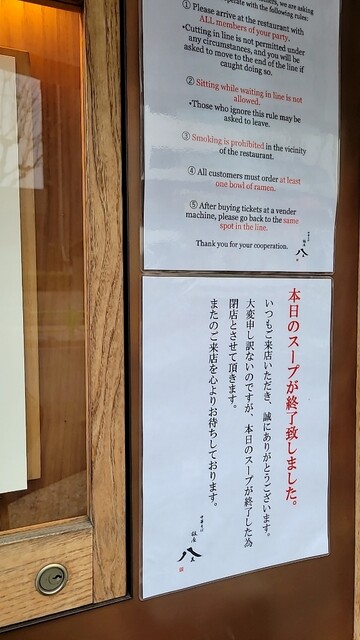 operate with the following rules:
① Please arrive at the restaurant with
ALL members of your party.
•Cutting in line is not permitted under
any circumstances, and you will be
asked to move to the end of the line if
caught doing so.
② Sitting while waiting in line is not
allowed.
•Those who ignore this rule may be
asked to leave.
③ Smoking is prohibited in the vicinity
of the restaurant.
④ All customers must order at least
one bowl of ramen.
⑤ After buying tickets at a vender
machine, please go back to the same
spot in the line.
Thank you for your cooperation.
本日のスープが終了致しました。
いつもご来店いただき、誠にありがとうございます。
大変申し訳ないのですが、本日のスープが終了した為
閉店とさせて頂きます。
またのご来店を心よりお待ちしております。
中華そば
銀座
八五